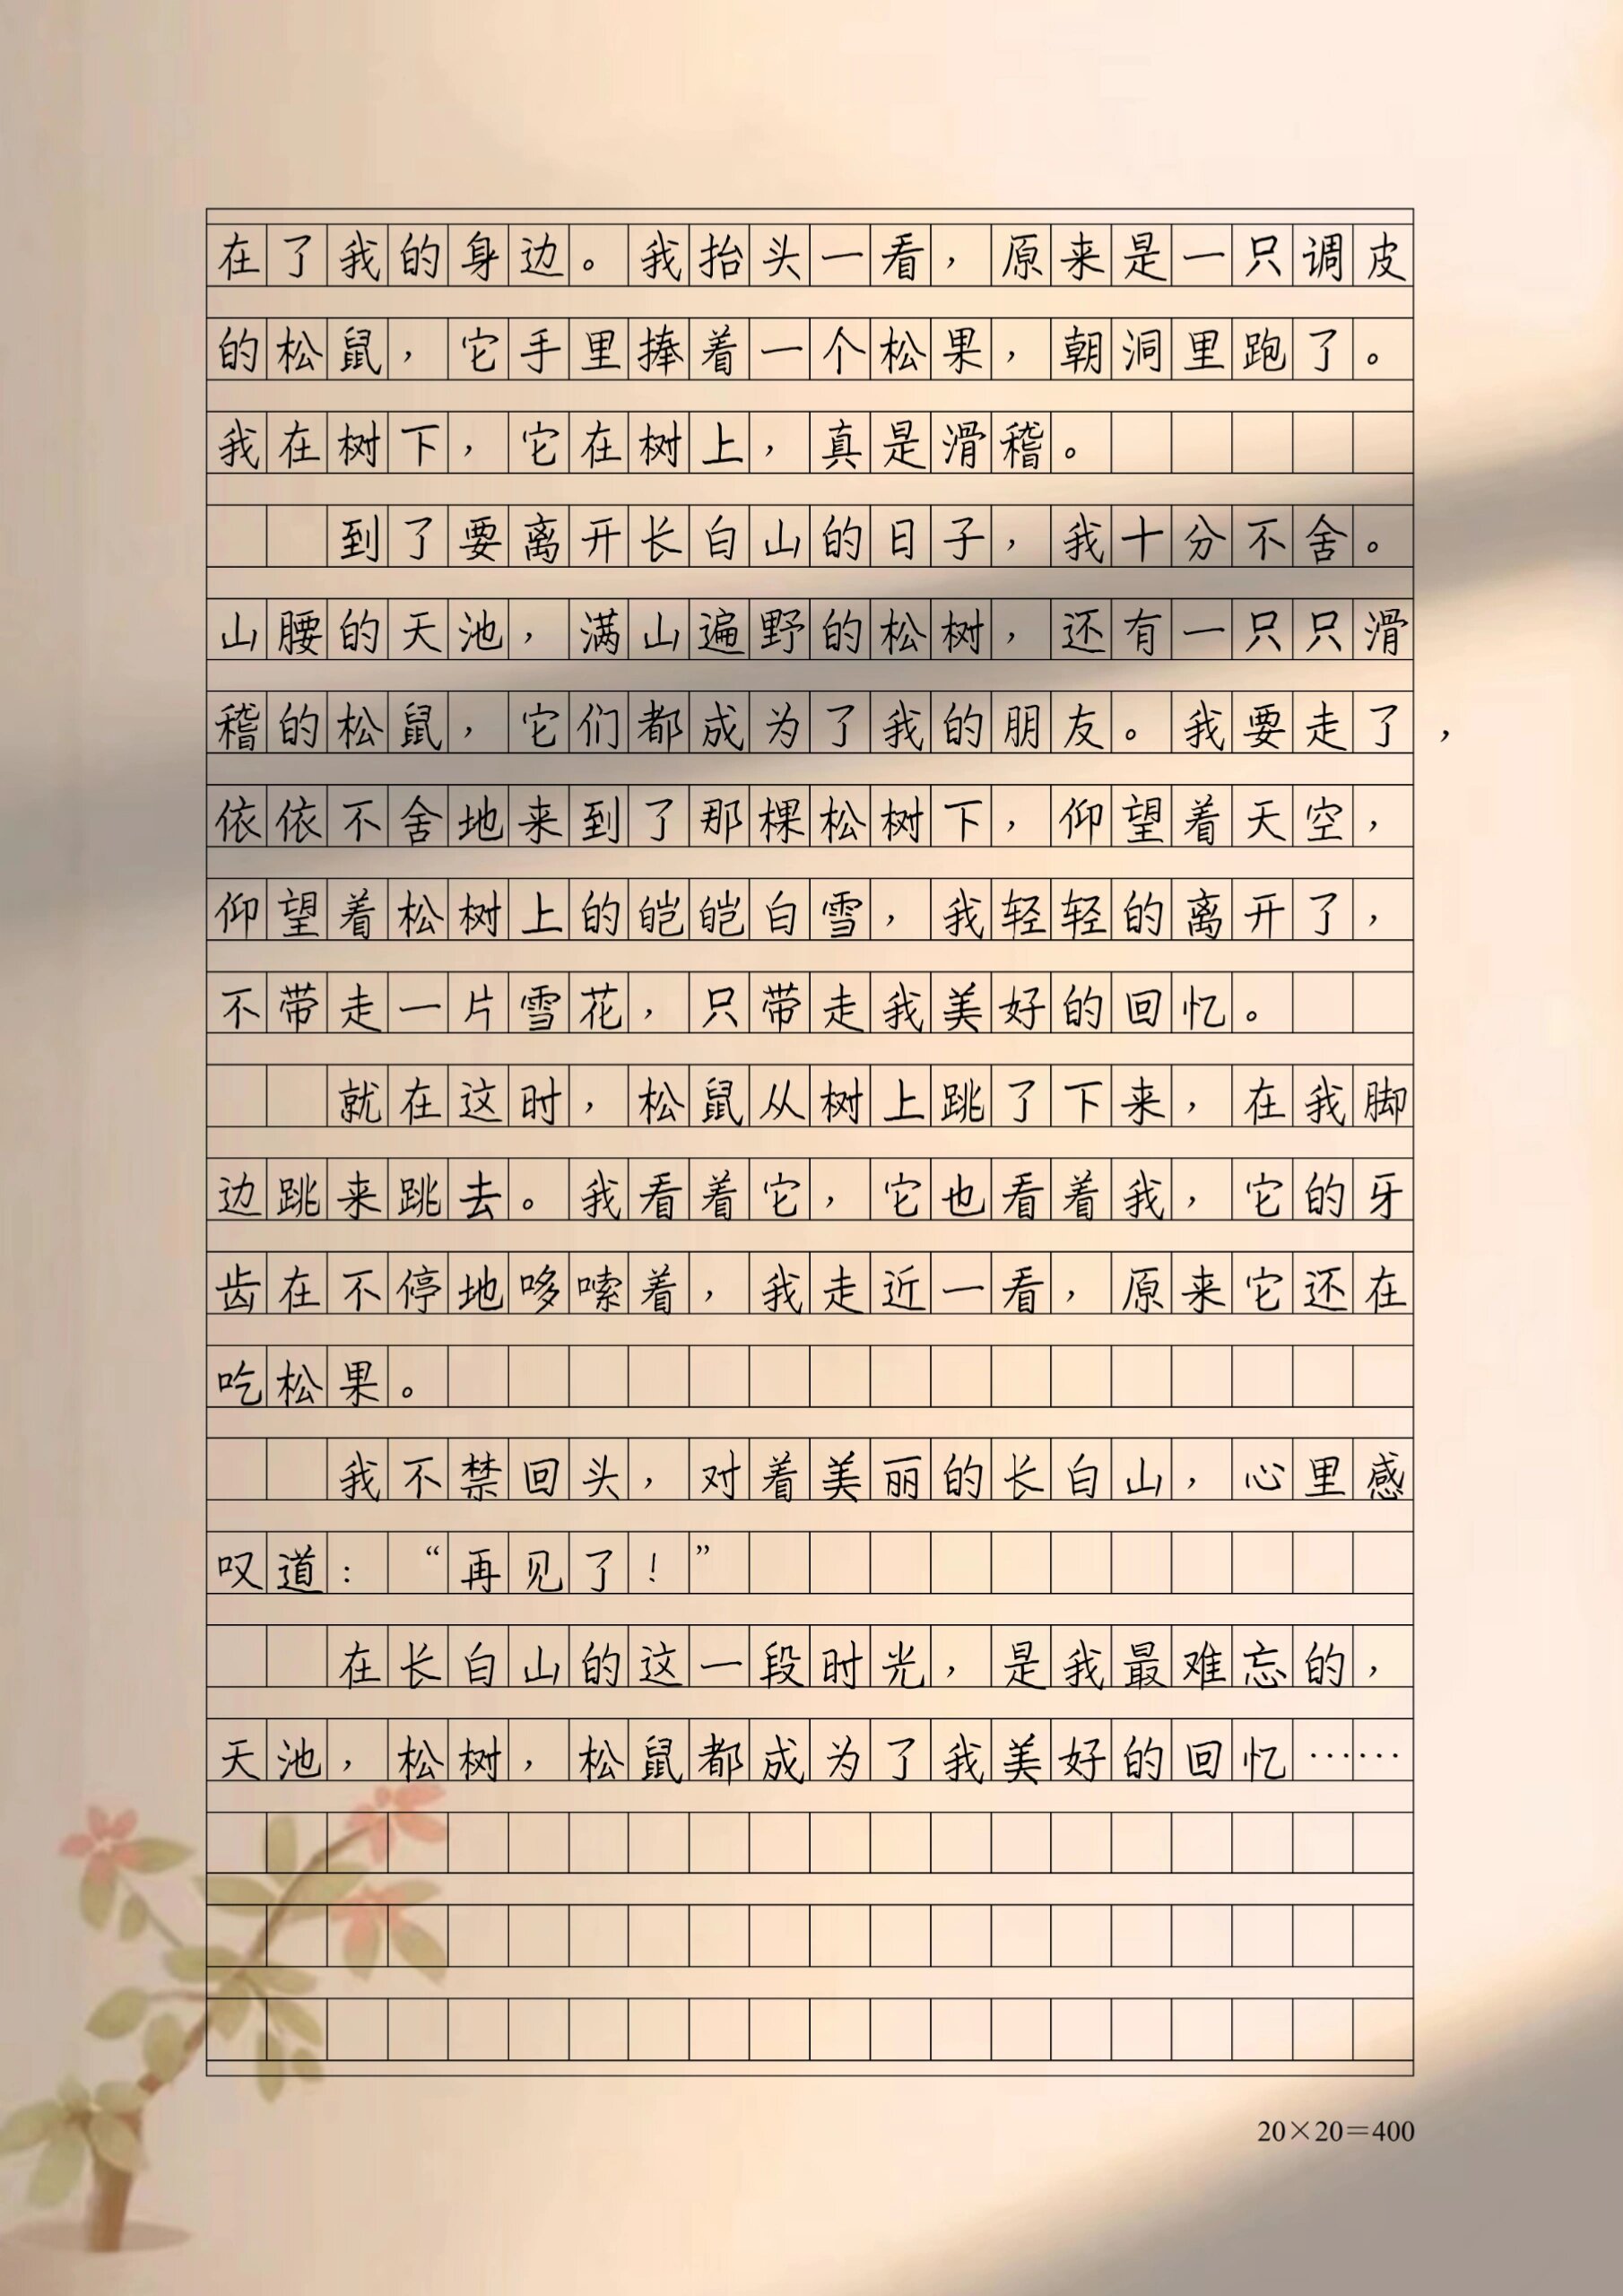 在了我的身边。我抬头一看，原来是一只调皮
的松鼠，它手里捧着一个松果，朝洞里跑了。
我在树下，它在树上，真是滑稽。
到了要离开长白山的日子，我十分不舍。
山腰的天池，满山遍野的松树，还有一只只滑
稽的松鼠，它们都成为了我的朋友。我要走了，
依依不舍地来到了那棵松树下，仰望着天空，
仰望着松树上的皑皑白雪，我轻轻的离开了，
不带走一片雪花，只带走我美好的回忆。
就在这时，松鼠从树上跳了下来，在我脚
边跳来跳去。我看着它，它也看着我，它的牙
齿在不停地哆嗦着，我走近一看，原来它还在
吃松果。
我不禁回头，对着美丽的长白山，心里感
叹道：“再见了！”
在长白山的这一段时光，是我最难忘的，
天池，松树，松鼠都成为了我美好的回忆……
20×20=400